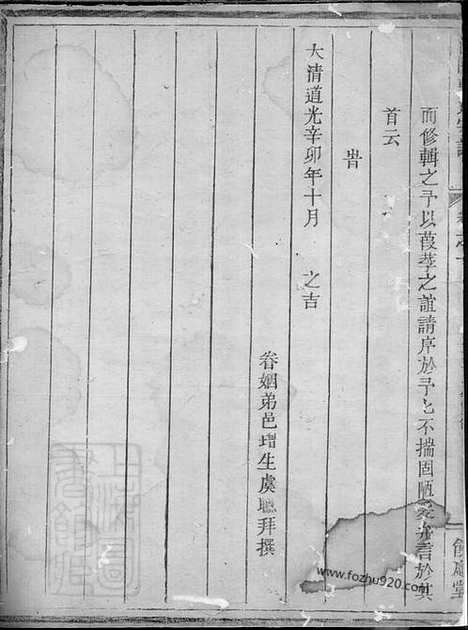 而修輯之予以葭莩之誼請序於予匕不揣固陋爰弁言於其
首云
旹
大清道光辛卯年十月　之吉
眷姻弟邑增生虞聽拜撰
上海圖書館藏
www.fozhu920.com